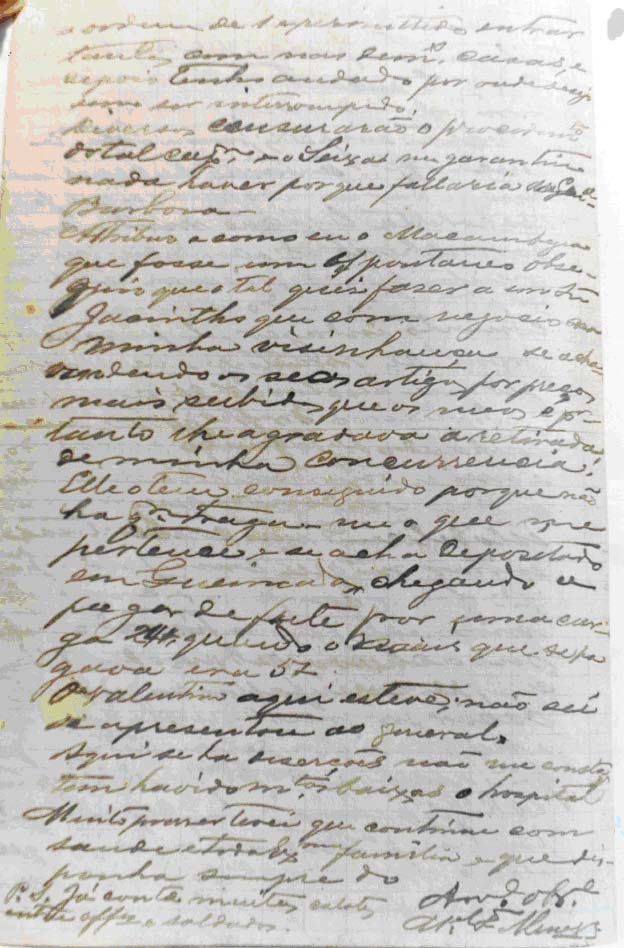 a ordem de ser permittido entrar
tanto como nas dem.s casas, e
depois tenho andado por onde desejo
sem ser interrompido.
Diversos censurarão o procedim.to
do tal cap.m e o Seixas me garantiu
nada haver porque fallaria ao Gal.
Barbosa.
Attribuo e como eu o Macambyra
que fosse um espontaneo obse-
quio que o tal quiz faser a um
Jacintho que com negocio na
minha visinhança se acha
vendendo os seos artigos por preços
mais subidos que os meos e por-
tanto lhe agradava a retirada
de minha concurrencia.
Elle o tem conseguido porque não
ha q.m traga-me o que me
pertence e se acha depositado
em Queimadas, chegando a
pagar de frete por uma car-
ga 24$ quando o mais que se pa
gava era 5$.
O Valentim aqui esteve, não sei
se apresentou ao general.
Aqui se ha deserções não me consta,
tem havido m.tas baixas o hospital
Muito praser terei que continue com
saude e toda Ex.ma familia e que dis-
ponha sempre do
Am.o Obr.o
Menezes
P.S. Já conta muitos
entre off.es e soldados.